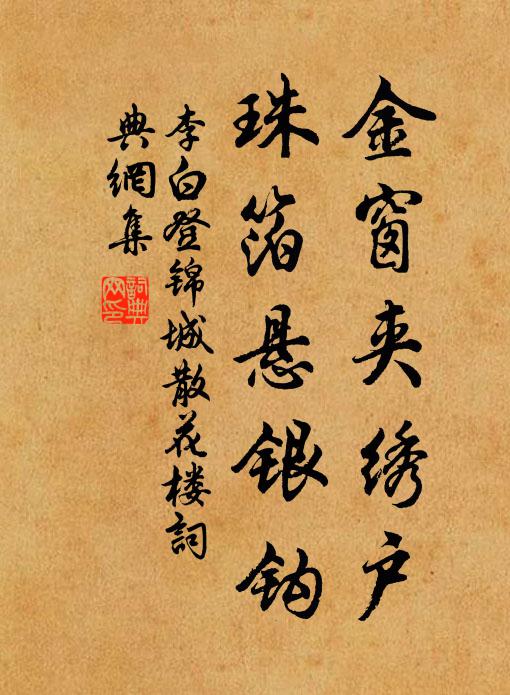 金窗夹绣户
珠箔悬银钩
李白登锦城散花楼詞
典網集
詞典网印